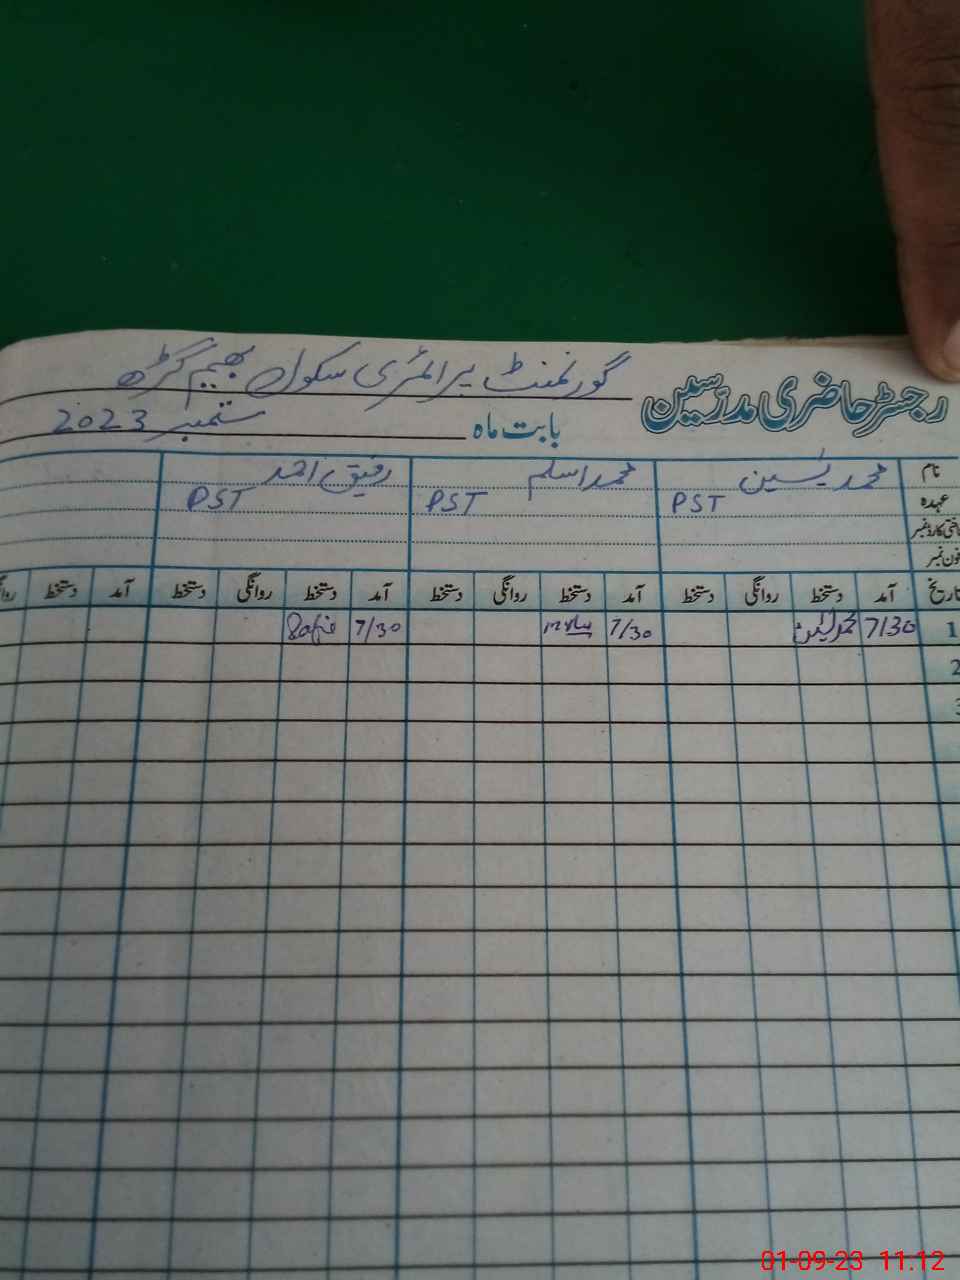 رجسٹر حاضری مدرسین گورنمنٹ پرائمری سکول بھیم گڑھ
بابت ماہ ستمبر 2023
نام محمد یٰسین محمد اسلم رفیق احمد
عہدہ PST PST PST
شناختی کارڈ نمبر
فون نمبر
تاریخ آمد دستخط روانگی دستخط آمد دستخط روانگی دستخط آمد دستخط روانگی دستخط آمد دستخط
1 7/30 محمد یٰسین 7/30 7/30
2
3
01-09-23 11.12